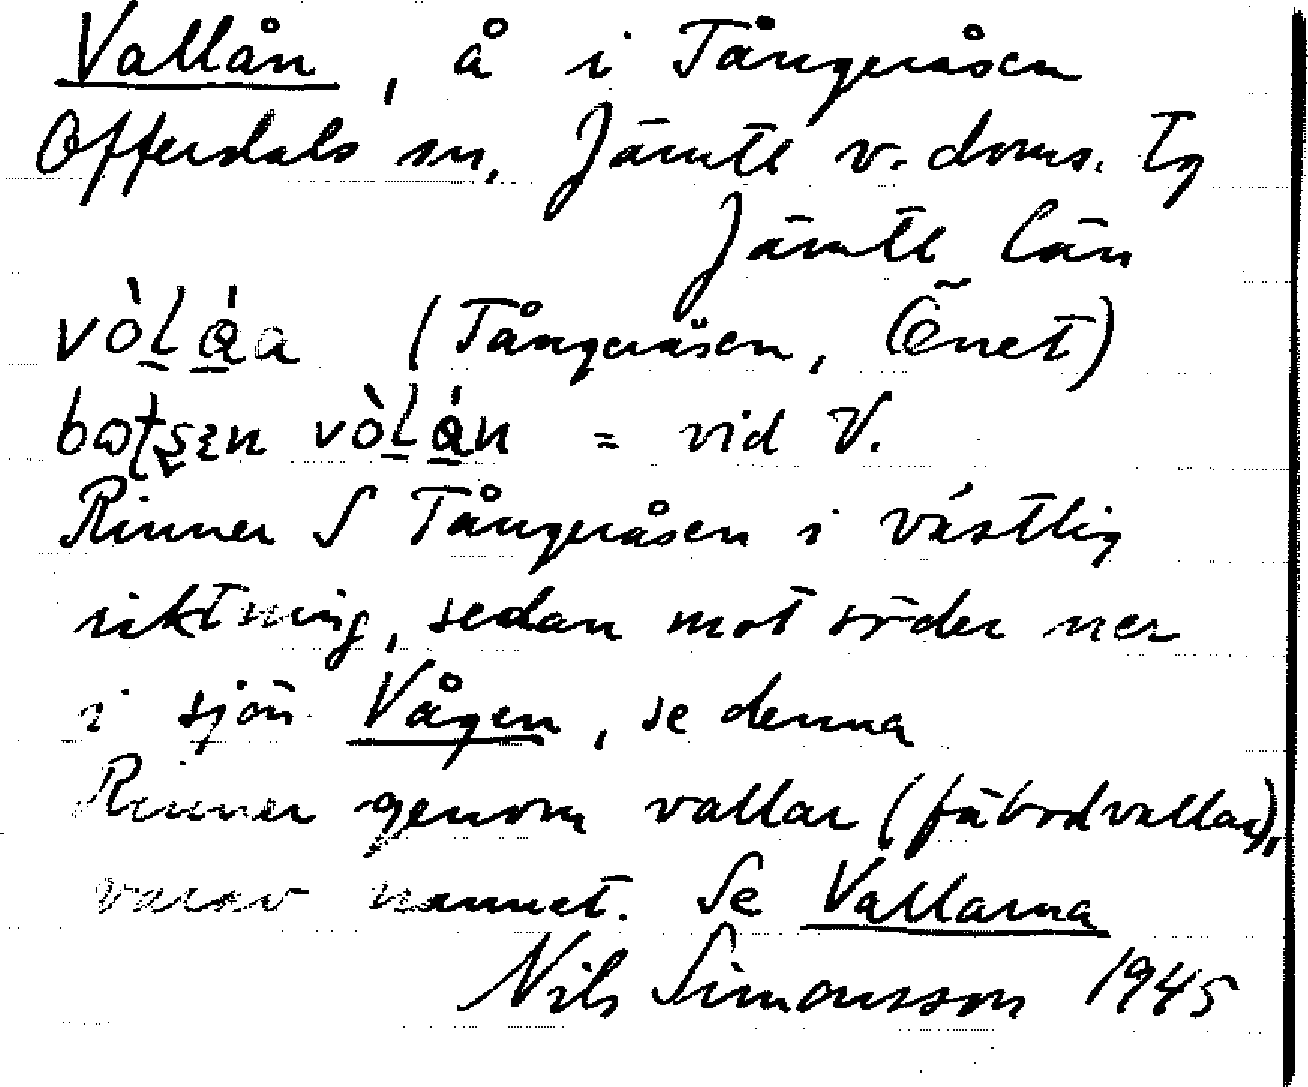 Vallån, å i Tångeråsen
Offerdals sn, Jämtl v. doms. tg
Jämtl län
vò̀ḷǻ̱a (Tångeråsen, Õnet)
vò̀ḷǻ̱n = vid V.
Rinner S Tångeråsen i västlig
riktning, sedan mot söder ner
i sjön Vågen, se denna
Rinner genom vallar (fäbodvallar),
varav namnet. Se Vallarna
Nils Simonsson 1945